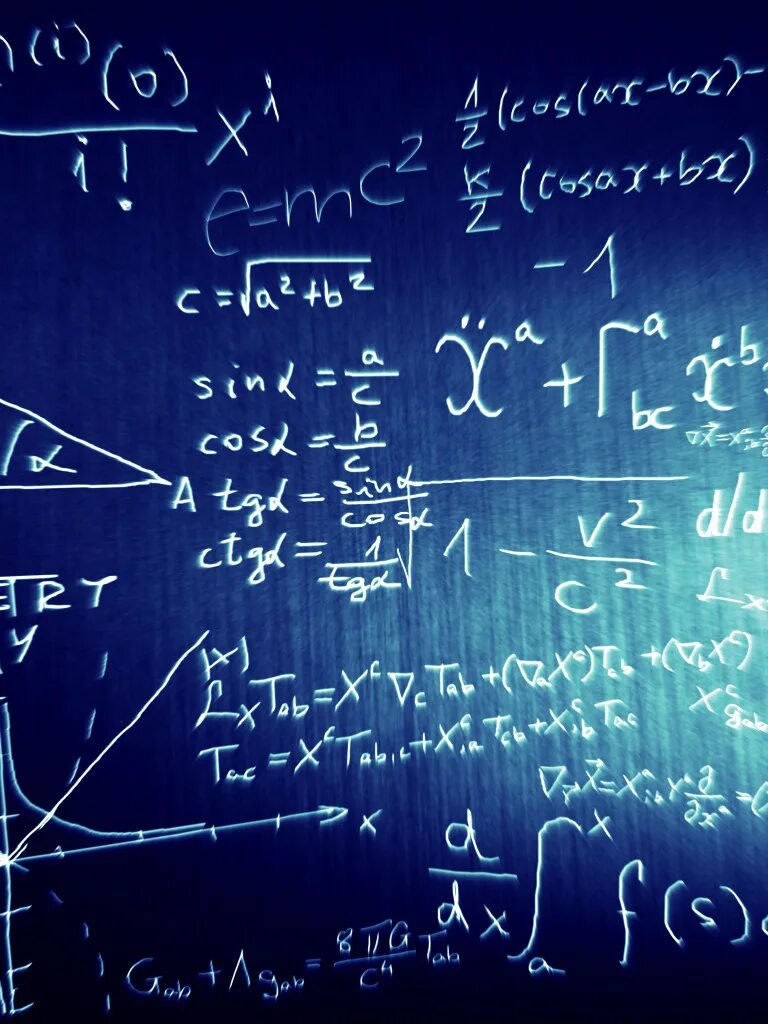 (i)(0)
i! xⁱ
e=mc²
1/2 (cos(ax-bx)-
k/2 (cosax+bx)
-1
c=√a²+b²
ẍᵃ+Γᵃbc ẋᵇ
sinα = a/c
cosα = b/c
α A tgα = sinα/cosα
ctgα = 1/tgα
√1 - v²/c²
d/d
ETRY
Y
|x|
ℒx
ℒxTab=Xᶜ∇cTab+(∇aXᶜ)Tcb+(∇bXᶜ)
Tac=XᶜTab,c+Xᶜ,aTcb+Xᶜ,bTac
Xᶜgab
x
d/dx ∫ₐˣ f(s)
Gab+Λgab=8πG/c⁴ Tab